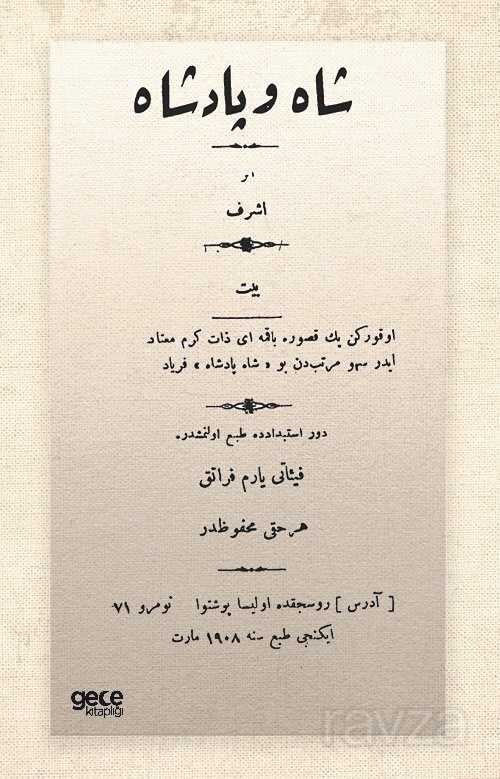 شاه و پادشاه
اثر
اشرف
بیت
اوقوركن پك قصوره باقمه ای ذات كرم معتاد
ایدر سهو مرتب‌دن بو « شاه پادشاه » فریاد
دور استبدادده طبع اولنمشدر.
فیئاتی یارم فرانق
هر حقی محفوظدر
[ آدرس ] روسجقده اولیسا پوشتوا نومرو ٧١
ایكنجی طبع سنه ١٩٠٨ مارت
gece
kitaplığı
ravza